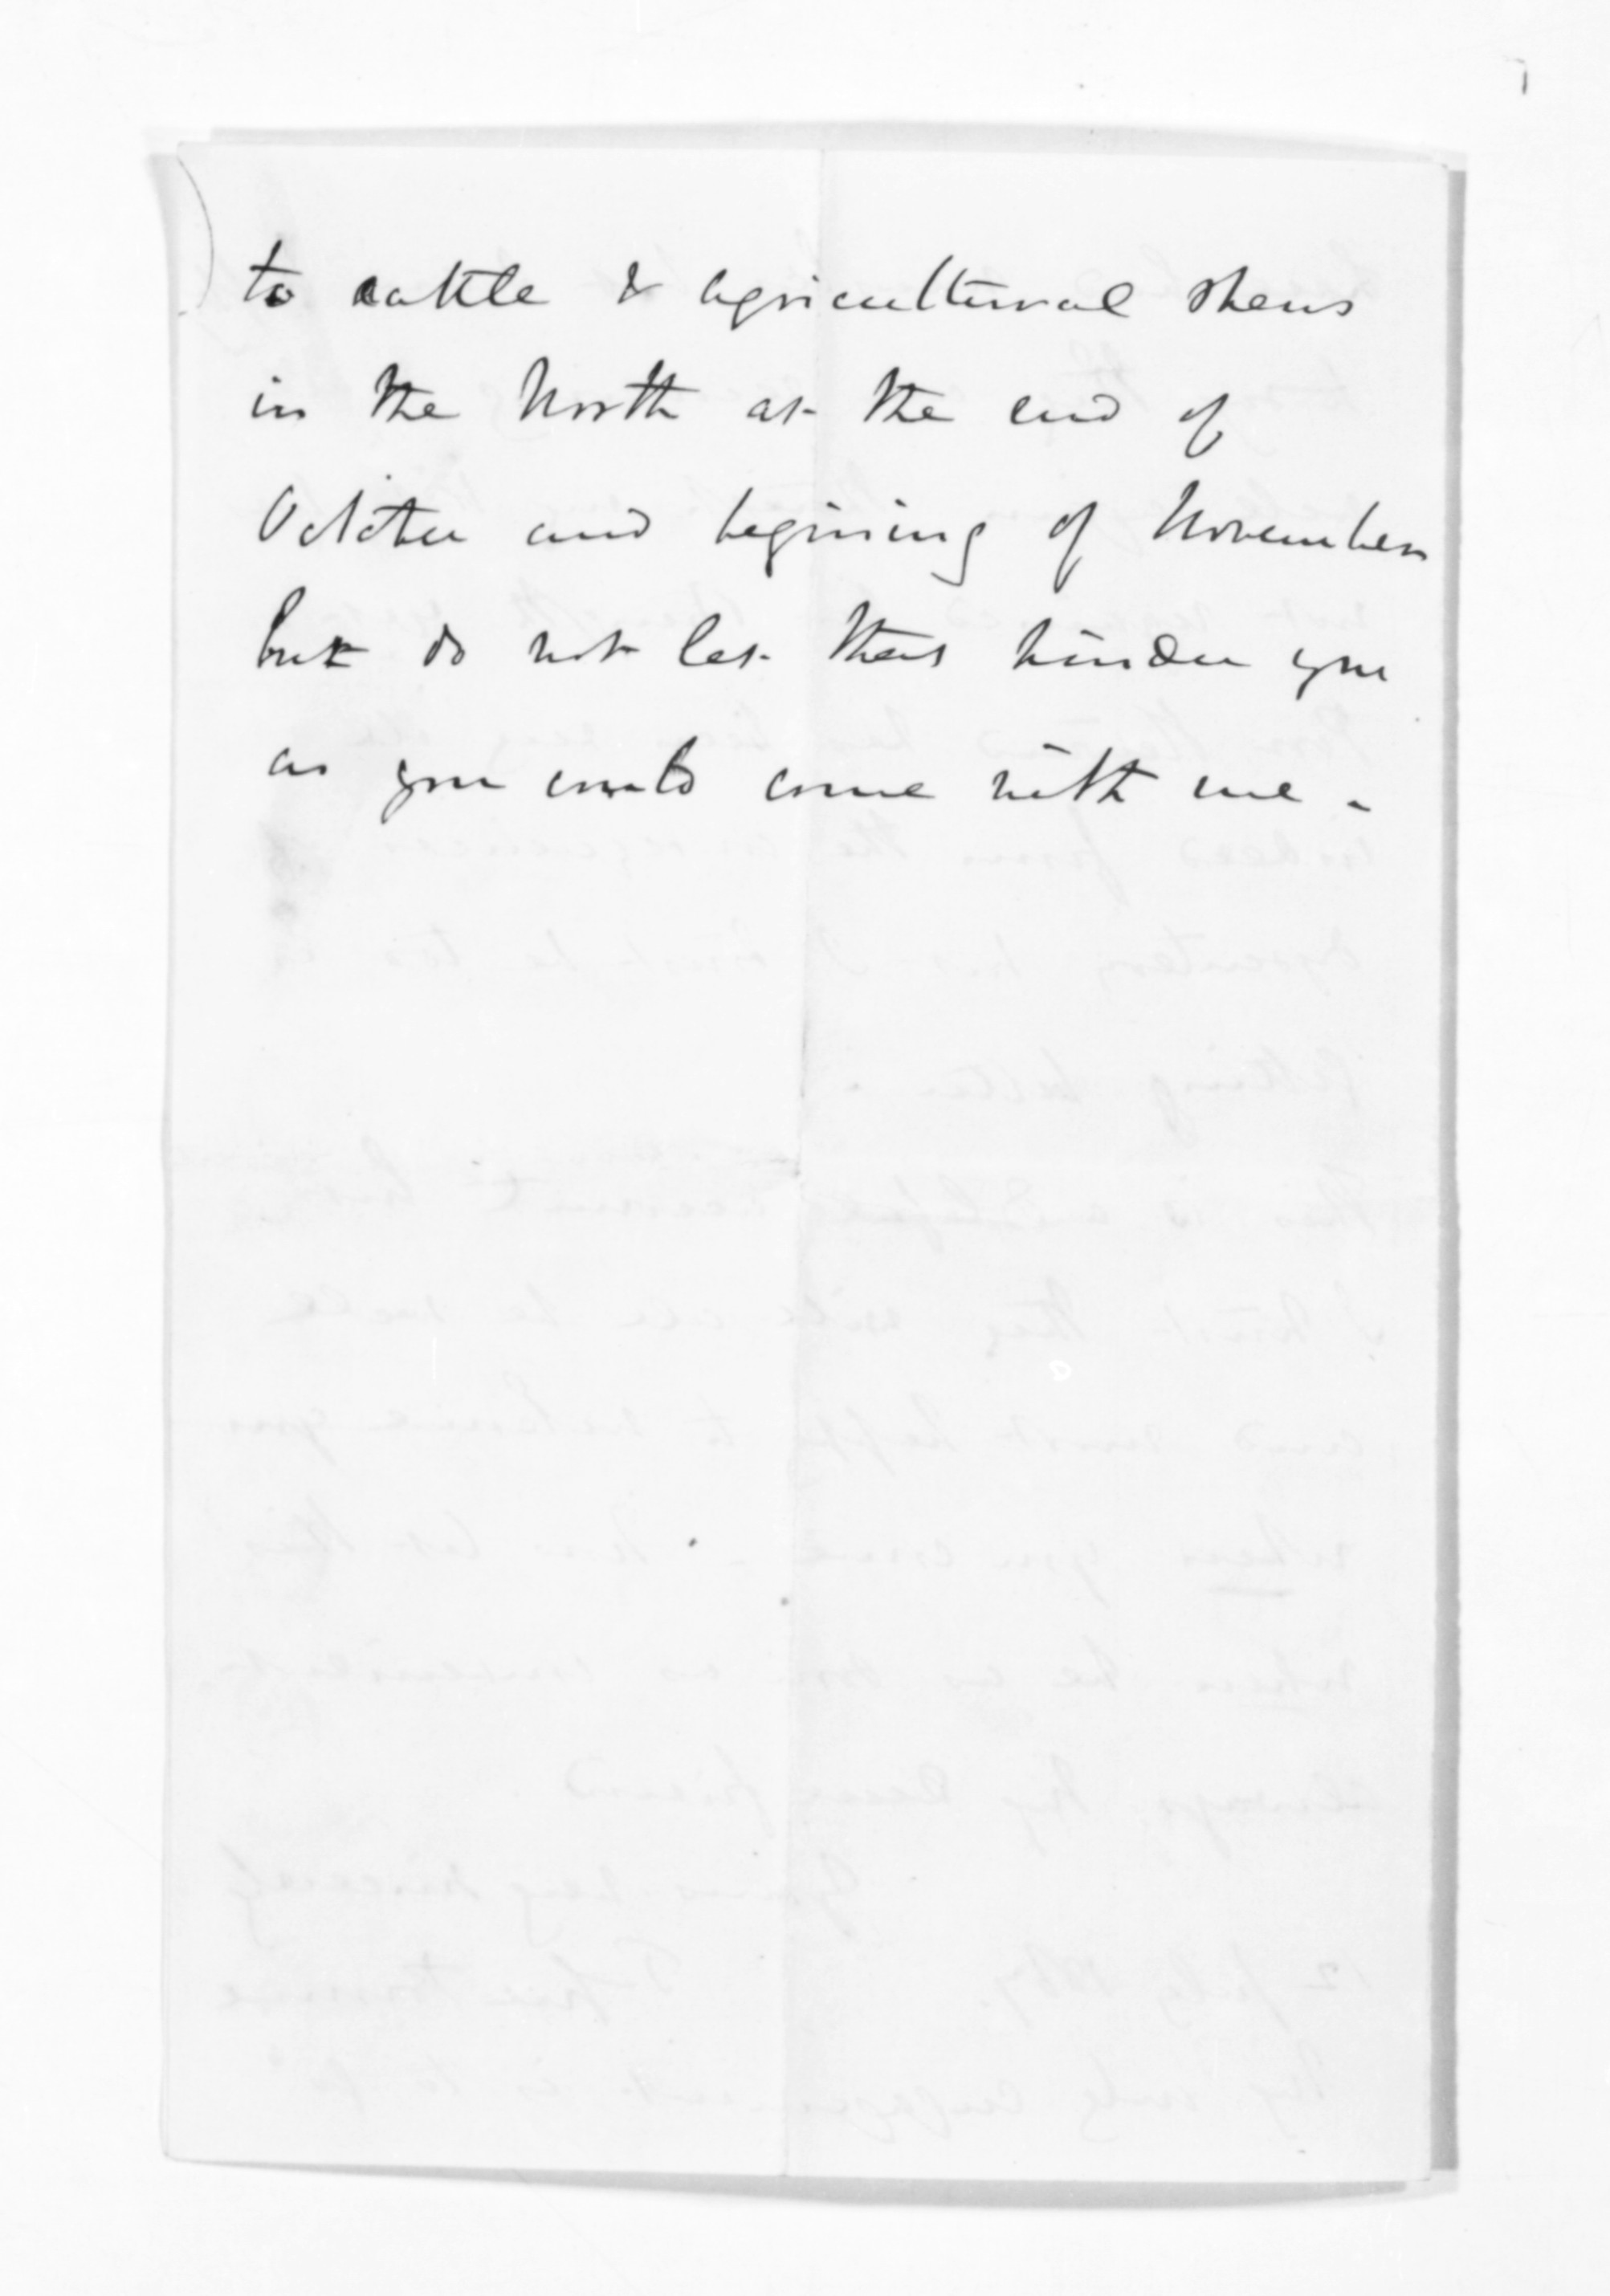 to cattle & agricultural shows
in the North at the end of
October and begining of November
but do not let that hinder you
as you could come with me -